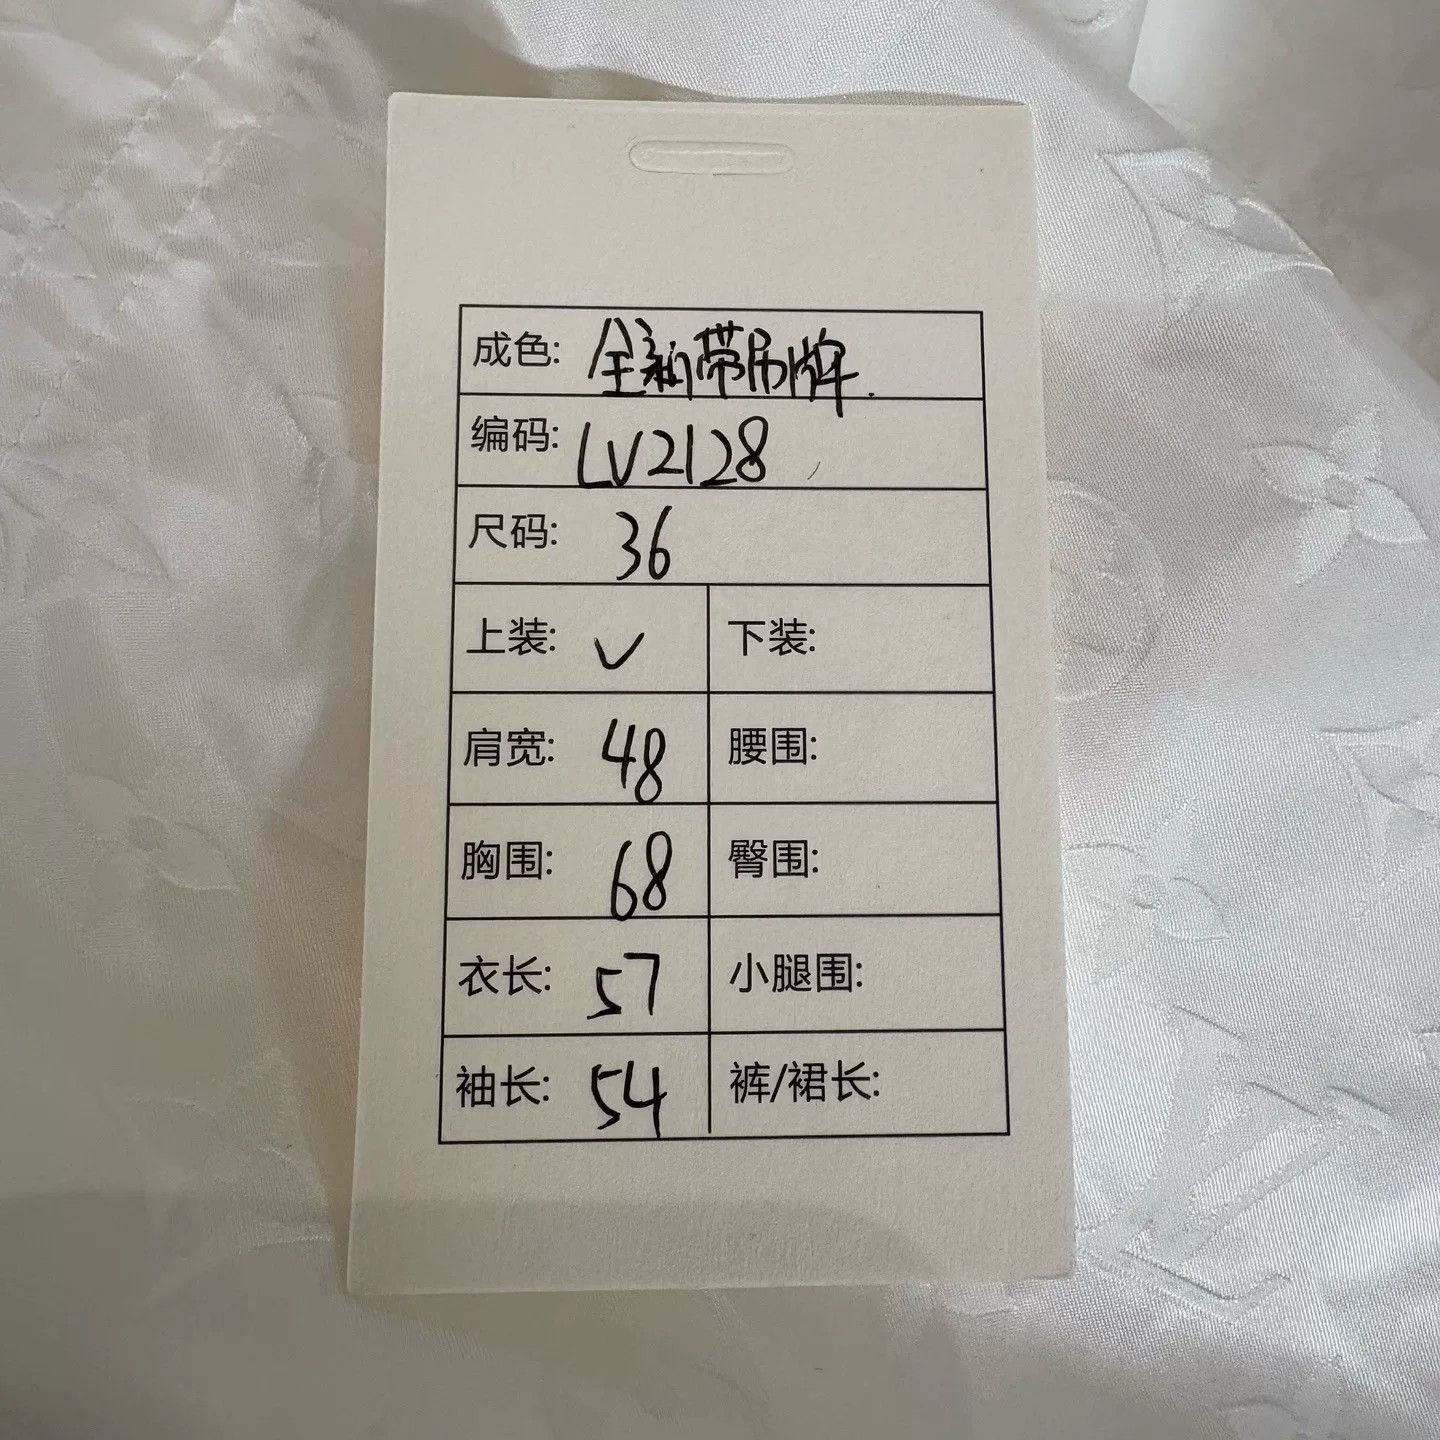 成色: 全新带吊牌.
编码: LV2128
尺码: 36
上装: ✓ 下装:
肩宽: 48 腰围:
胸围: 68 臀围:
衣长: 57 小腿围:
袖长: 54 裤/裙长:
LV